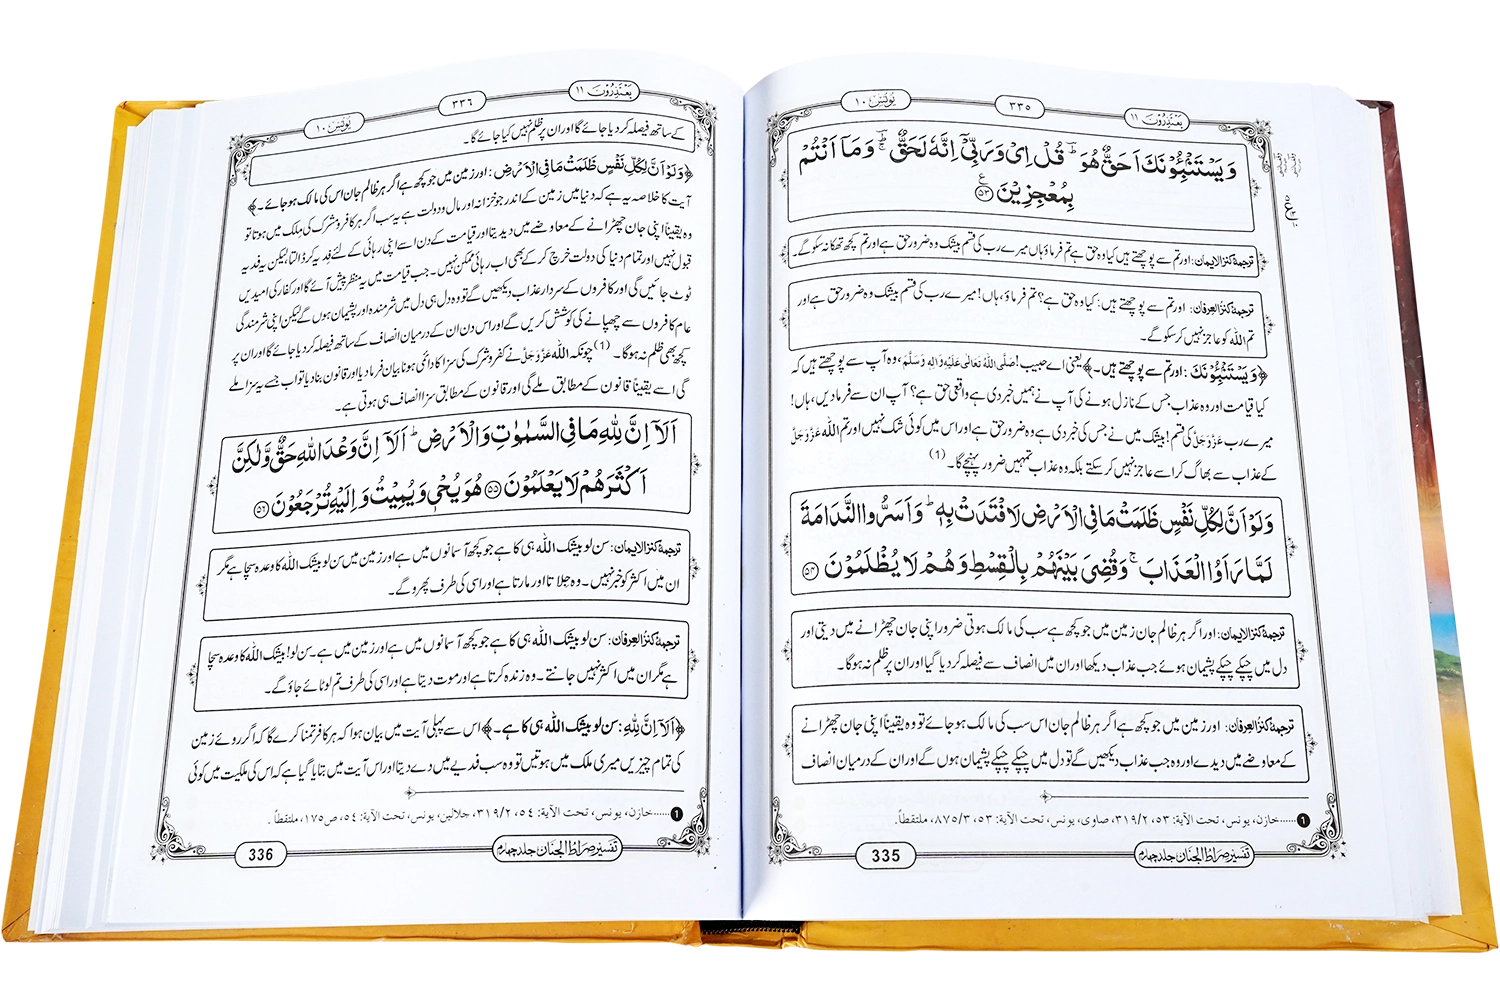 یَعْتَذِرُوْنَ ۱۱
۳۳۵
یُوْنُس ۱۰
وَیَسْتَنْۢبِـُٔوْنَكَ اَحَقٌّ هُوَ ؕ قُلْ اِیْ وَرَبِّیْۤ اِنَّهٗ لَحَقٌّ ؔؕ وَمَاۤ اَنْتُمْ
بِمُعْجِزِیْنَ ۠﴿۵۳﴾
ترجمۂ کنزالایمان: اور تم سے پوچھتے ہیں کیا وہ حق ہے تم فرماؤ ہاں میرے رب کی قسم بیشک وہ ضرور حق ہے اور تم کچھ تھکا نہ سکو گے۔
ترجمۂ کنزالعرفان: اور تم سے پوچھتے ہیں: کیا وہ حق ہے؟ تم فرماؤ، ہاں! میرے رب کی قسم بیشک وہ ضرور حق ہے اور
تم اللہ کو عاجز نہیں کرسکو گے۔
﴿وَیَسْتَنْۢبِـُٔوْنَكَ: اور تم سے پوچھتے ہیں۔﴾ یعنی اے حبیب! صَلَّی اللہُ تَعَالٰی عَلَیْہِ وَاٰلِہٖ وَسَلَّمَ، وہ آپ سے پوچھتے ہیں کہ
کیا قیامت اور وہ عذاب جس کے نازل ہونے کی آپ نے ہمیں خبر دی ہے واقعی حق ہے؟ آپ ان سے فرما دیں، ہاں!
میرے رب عَزَّوَجَلَّ کی قسم! بیشک میں نے جس کی خبر دی ہے وہ ضرور حق ہے اور اس میں کوئی شک نہیں اور تم اللہ عَزَّوَجَلَّ
کے عذاب سے بھاگ کر اسے عاجز نہیں کر سکتے بلکہ وہ عذاب تمہیں ضرور پہنچے گا۔ (1)
وَلَوْ اَنَّ لِكُلِّ نَفْسٍ ظَلَمَتْ مَا فِی الْاَرْضِ لَافْتَدَتْ بِهٖ ؕ وَاَسَرُّوا النَّدَامَةَ
لَمَّا رَاَوُا الْعَذَابَ ۚ وَقُضِیَ بَیْنَهُمْ بِالْقِسْطِ وَهُمْ لَا یُظْلَمُوْنَ ﴿۵۴﴾
ترجمۂ کنزالایمان: اور اگر ہر ظالم جان زمین میں جو کچھ ہے سب کی مالک ہوتی ضرور اپنی جان چھڑانے میں دیتی اور
دل میں چپکے چپکے پشیمان ہوئے جب عذاب دیکھا اور ان میں انصاف سے فیصلہ کردیا گیا اور ان پر ظلم نہ ہوگا۔
ترجمۂ کنزالعرفان: اور زمین میں جو کچھ ہے اگر ہر ظالم جان اس سب کی مالک ہوجائے تو وہ یقیناً اپنی جان چھڑانے
کے معاوضے میں دیدے اور وہ جب عذاب دیکھیں گے تو دل میں چپکے چپکے پشیمان ہوں گے اور ان کے درمیان انصاف
1 ......خازن، یونس، تحت الآیۃ: ۵۳، ۳۱۹/۲، صاوی، یونس، تحت الآیۃ: ۵۳، ۸۷۵/۳، ملتقطاً.
تفسیر صراط الجنان جلد چہارم
335
یَعْتَذِرُوْنَ ۱۱
۳۳۶
یُوْنُس ۱۰
کے ساتھ فیصلہ کردیا جائے گا اور ان پر ظلم نہیں کیا جائے گا۔
﴿وَلَوْ اَنَّ لِكُلِّ نَفْسٍ ظَلَمَتْ مَا فِی الْاَرْضِ: اور زمین میں جو کچھ ہے اگر ہر ظالم جان اس کی مالک ہوجائے۔﴾
آیت کا خلاصہ یہ ہے کہ دنیا میں زمین کے اندر جو خزانہ اور مال و دولت ہے یہ سب اگر ہر کافر و مشرک کی ملک میں ہوتا تو
وہ یقیناً اپنی جان چھڑانے کے معاوضے میں دیدیتا اور قیامت کے دن اسے اپنی رہائی کے لئے فدیہ کر ڈالتا لیکن یہ فدیہ
قبول نہیں اور تمام دنیا کی دولت خرچ کر کے بھی اب رہائی ممکن نہیں۔ جب قیامت میں یہ منظر پیش آئے گا اور کفار کی امیدیں
ٹوٹ جائیں گی اور کافروں کے سردار عذاب دیکھیں گے تو وہ دل ہی دل میں شرمندہ اور پشیمان ہوں گے لیکن اپنی شرمندگی
عام کافروں سے چھپانے کی کوشش کریں گے اور اس دن ان کے درمیان انصاف کے ساتھ فیصلہ کردیا جائے گا اور ان پر
کچھ بھی ظلم نہ ہوگا۔ (1) چونکہ اللہ عَزَّوَجَلَّ نے کفر و شرک کی سزا کا دائمی ہونا بیان فرمادیا اور قانون بنادیا تو اب جسے یہ سزا ملے
گی اسے یقیناً قانون کے مطابق ملے گی اور قانون کے مطابق سزا انصاف ہی ہوتی ہے۔
اَلَاۤ اِنَّ لِلّٰهِ مَا فِی السَّمٰوٰتِ وَالْاَرْضِ ؕ اَلَاۤ اِنَّ وَعْدَ اللّٰهِ حَقٌّ وَّلٰكِنَّ
اَكْثَرَهُمْ لَا یَعْلَمُوْنَ ﴿۵۵﴾ هُوَ یُحْیٖ وَیُمِیْتُ وَاِلَیْهِ تُرْجَعُوْنَ ﴿۵۶﴾
ترجمۂ کنزالایمان: سن لو بیشک اللہ ہی کا ہے جو کچھ آسمانوں میں ہے اور زمین میں سن لو بیشک اللہ کا وعدہ سچا ہے مگر
ان میں اکثر کو خبر نہیں۔ وہ جِلاتا اور مارتا ہے اور اسی کی طرف پھرو گے۔
ترجمۂ کنزالعرفان: سن لو بیشک اللہ ہی کا ہے جو کچھ آسمانوں میں ہے اور زمین میں ہے۔ سن لو! بیشک اللہ کا وعدہ سچا
ہے مگر ان میں اکثر نہیں جانتے۔ وہ زندہ کرتا ہے اور موت دیتا ہے اور اسی کی طرف تم لوٹائے جاؤ گے۔
﴿اَلَاۤ اِنَّ لِلّٰهِ: سن لو بیشک اللہ ہی کا ہے۔﴾ اس سے پہلی آیت میں بیان ہوا کہ ہر کافر تمنا کرے گا کہ اگر روئے زمین
کی تمام چیزیں میری ملک میں ہوتیں تو وہ سب فدیے میں دے دیتا اور اس آیت میں بتایا گیا ہے کہ اس کی ملکیت میں کوئی
1 ......خازن، یونس، تحت الآیۃ: ۵۴، ۳۱۹/۲، جلالین، یونس، تحت الآیۃ: ۵۴، ص۱۷۵، ملتقطاً.
تفسیر صراط الجنان جلد چہارم
336